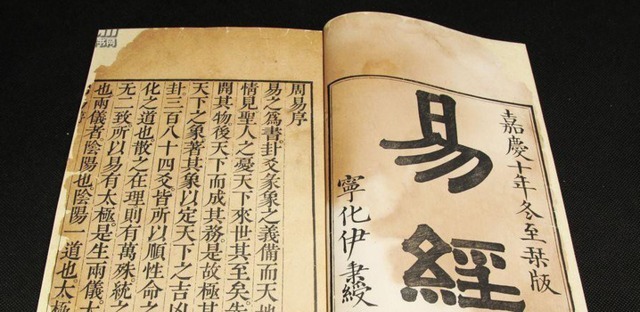 嘉慶十年冬至栞版
易經
寧化伊秉綬
周易序
易之爲書卦爻彖象之義備而天地
情見聖人之憂天下來世其至矣先
開其物後天下而成其務是故極其
天下之象著其象以定天下之吉凶
卦三百八十四爻皆所以順性命之
化之道也散之在理則有萬殊統之
無二致所以易有太極是生兩儀太
也兩儀者陰陽也陰陽一道也太極